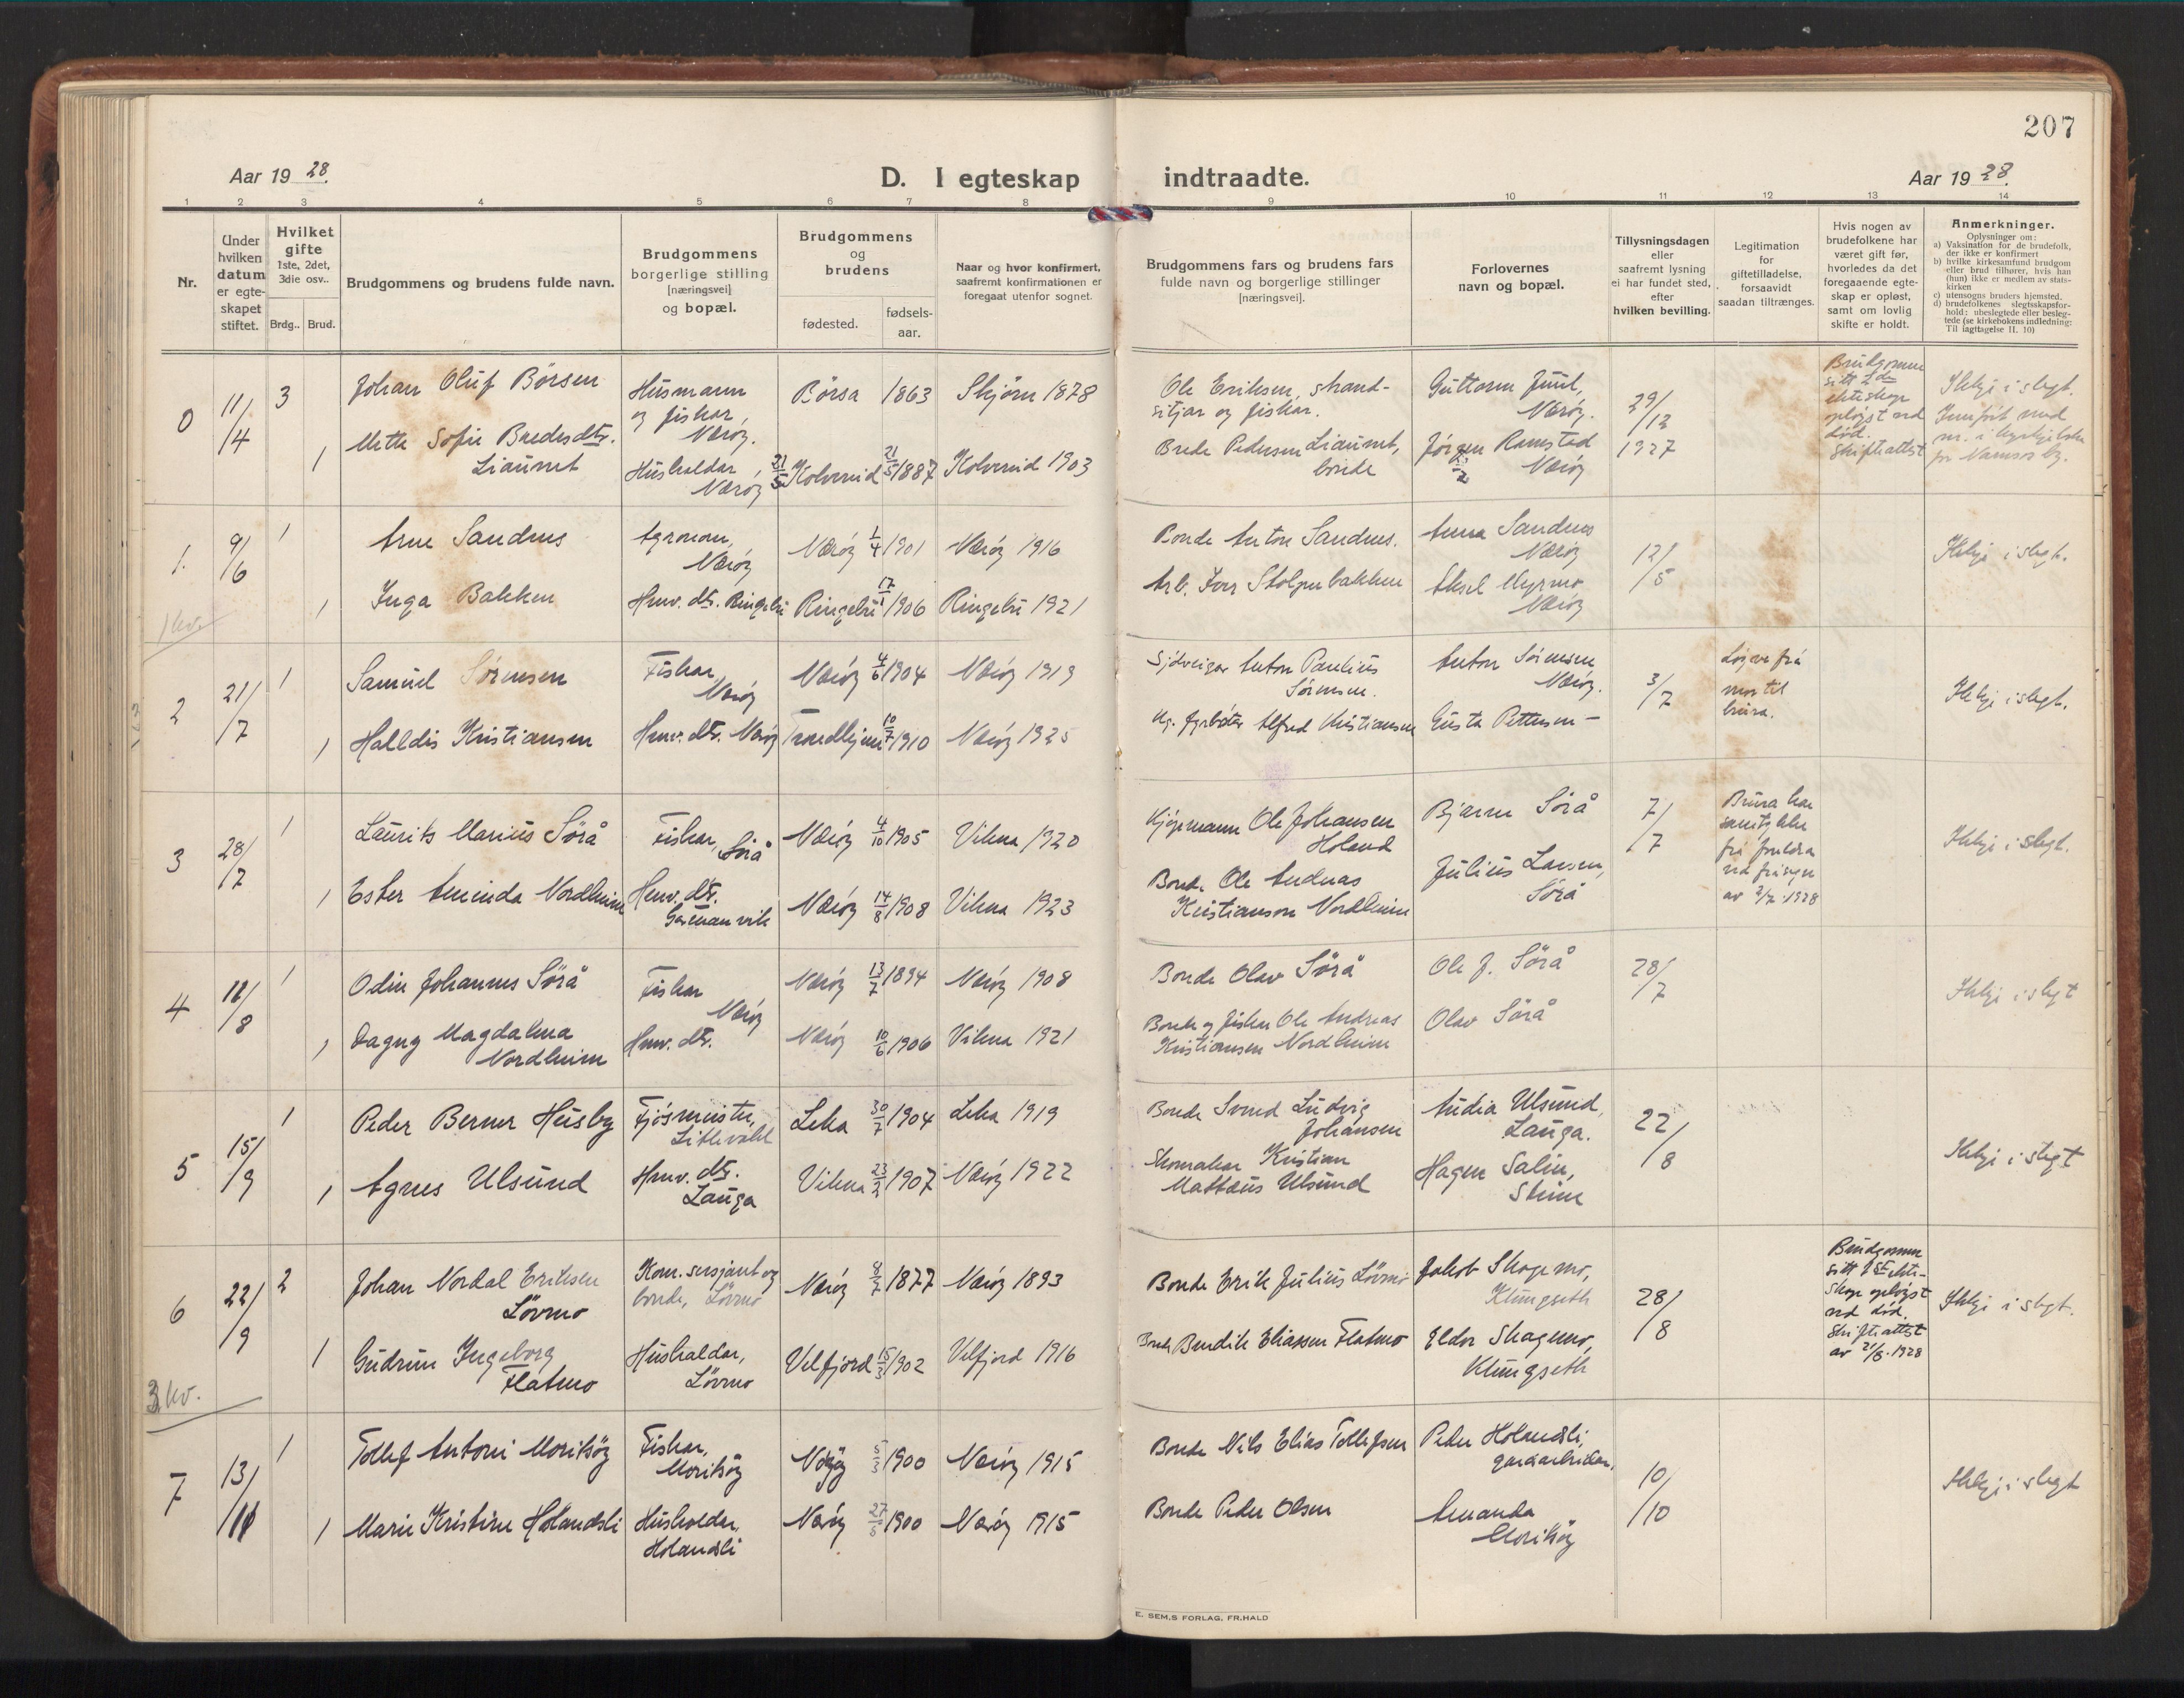 207
Aar 19 28.
D. I egteskap indtraadte.
Aar 19 28.
1 2 3 4 5 6 7 8 9 10 11 12 13 14
Nr.
Under hvilken datum er egte-skapet stiftet.
Hvilket gifte
1ste, 2det, 3die osv..
Brdg.. Brud.
Brudgommens og brudens fulde navn.
Brudgommens borgerlige stilling [næringsvei] og bopæl.
Brudgommens og brudens
fødested.
fødsels-aar.
Naar og hvor konfirmert, saafremt konfirmationen er foregaat utenfor sognet.
Brudgommens fars og brudens fars fulde navn og borgerlige stillinger [næringsvei].
Forlovernes navn og bopæl.
Tillysningsdagen eller saafremt lysning ei har fundet sted, efter hvilken bevilling.
Legitimation for giftetilladelse, forsaavidt saadan tiltrænges.
Hvis nogen av brudefolkene har været gift før, hvorledes da det foregaaende egte-skap er opløst, samt om lovlig skifte er holdt.
Anmerkninger.
Oplysninger om:
a) Vaksination for de brudefolk, der ikke er konfirmert
b) hvilke kirkesamfund brudgom eller brud tilhører, hvis han (hun) ikke er medlem av stats-kirken
c) utensogns bruders hjemsted.
d) brudefolkenes slegtsskapsfor-hold: ubeslegtede eller besleg-tede (se kirkebokens indledning: Til iagttagelse II. 10)
0 11/4 3 Johan Oluf Börsen
Husmann og fiskar, Nærøy.
Börsa 1863 Skjörn 1878
Ole Eriksen, strand-sitjar og fiskar.
Guttorm Juul, Nærøy.
29/12 1927
Brudgommens sitt 2det ekteskap opløyst ved död. Skifteattest
Ikkje i slegt.
1 Mette Sofie Bredesdtr. Liaunet
Hushaldar, Nærøy
21/5 Kolvereid 21/5 1887 Kolvereid 1903
Brede Pedersen Liaunet, bonde
Jörgen Ramstad Nærøy
1. 9/6 1 Arne Sandnes
Agronom, Nærøy
Nærøy 1/4 1901 Nærøy 1916
Bonde Anton Sandnes.
Anna Sandnes Nærøy
12/5
Ikkje i slegt.
1 Inga Bakken
Heimv. dtr. Ringebu
Ringebu 17/1 1906 Ringebu 1921
Arb. Iver Stolpenbakken
Aksel Myrmo Nærøy
1 kv.
2 21/7 1 Samuel Sörensen
Fiskar, Nærøy
Nærøy 4/6 1904 Nærøy 1919
Anton Paulius Sörensen.
Anton Sörensen Nærøy.
3/7
Löyve frå mor til brura.
Ikkje i slegt.
1 Halldis Kristiansen
Heimv. dtr. Nærøy
Trondhjem 10/7 1910 Nærøy 1925
Alfred Kristiansen
Gusta Pettersen -
3 28/7 1 Laurits Marius Sörå
Fiskar, Sörå
Nærøy 4/10 1905 Vikna 1920
Kjöpmann Ole Johansen Holand
Bjarne Sörå
7/7
Brura har samtykke frå foreldra
av 2/7 1928
Ikkje i slegt.
1 Ester Aminda Nordheim
Heimv. dtr.
Nærøy 14/8 1908 Vikna 1923
Bonde Ole Andreas Kristianson Nordheim
Julius Larsen, Sörå
4 11/8 1 Odin Johannes Sörå
Fiskar Nærøy
Nærøy 13/7 1894 Nærøy 1908
Bonde Olav Sörå
Ole J. Sörå
28/7
Ikkje i slegt
1 Dagny Magdalena Nordheim
Heimv. dtr.
Nærøy 10/6 1906 Vikna 1921
Bonde og fiskar Ole Andreas Kristiansen Nordheim
Olav Sörå
5 15/9 1 Peder Berner Husby
Fjösmeister,
Leka 30/7 1904 Leka 1919
Bonde Svend Ludvig Johansen
Audia Ulsund, Lauga.
22/8
Ikkje i slegt
1 Agnes Ulsund
Heimv. dtr. Lauga
Vikna 23/2 1907 Nærøy 1922
Skomakar Kristian Mattæus Ulsund
Hagen Salin, Steine
6 22/9 2 Johan Nordal Eriksen Lövmo
Kom. sersjant og bonde, Lövmo
Nærøy 8/7 1877 Nærøy 1893
Bonde Erik Julius Lövmo
Jakob Skogmo, Klungseth
28/8
Brudgommens sitt 1ste ekte-skap opløyst ved död. Skifteattest av 21/8. 1928
Ikkje i slegt.
1 Gudrun Ingeborg Flatmo
Hushaldar, Lövmo
Velfjord 15/3 1902 Velfjord 1916
Bonde Bendik Eliassen Flatmo
Eldor Skagmo, Klungseth
3 kv.
7 13/11 1 Tollef Antoni Moriksöy
Fiskar, Moriksöy
Nærøy 5/3 1900 Nærøy 1915
Bonde Nils Elias Tollefsen
Peder Hölandsli, gardarbeidar,
10/10
Ikkje i slegt
1 Marie Kristine Hölandsli
Hushaldar, Hölandsli
Nærøy 27/5 1900 Nærøy 1915
Bonde Peder Olsen
Amanda Moriksöy
E. SEM,S FORLAG, FR.HALD